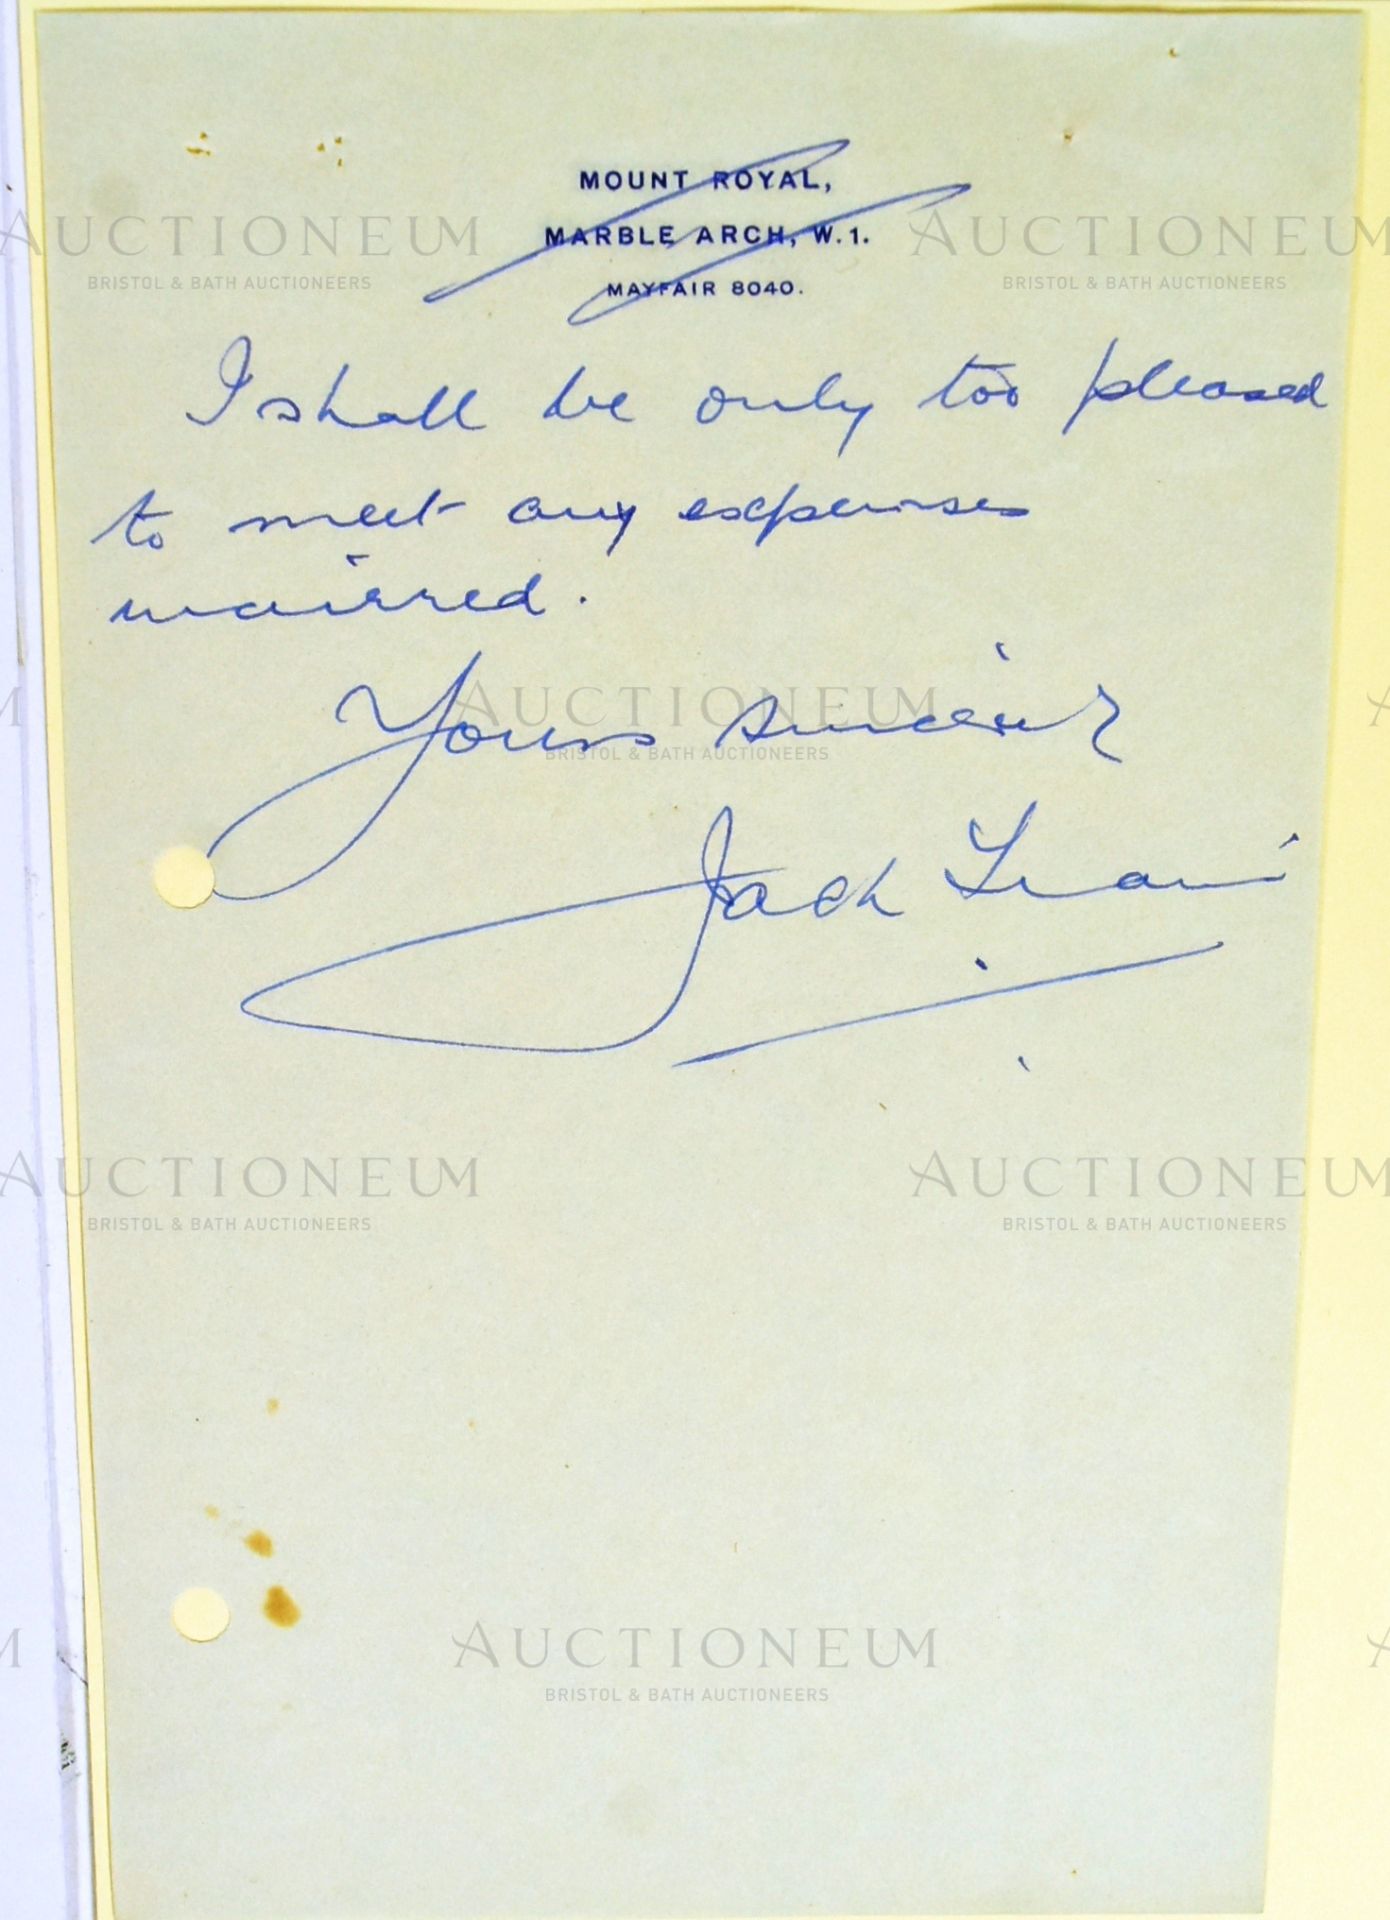 MOUNT ROYAL,
MARBLE ARCH, W.1.
MAYFAIR 8040.
I shall be only too pleased
to meet any expenses
incurred.
Yours sincerely
Jack
AUCTIONEUM
BRISTOL & BATH AUCTIONEERS
AUCTIONEUM
BRISTOL & BATH AUCTIONEERS
AUCTIONEUM
BRISTOL & BATH AUCTIONEERS
AUCTIONEUM
BRISTOL & BATH AUCTIONEERS
AUCTIONEUM
BRISTOL & BATH AUCTIONEERS
AUCTIONEUM
BRISTOL & BATH AUCTIONEERS